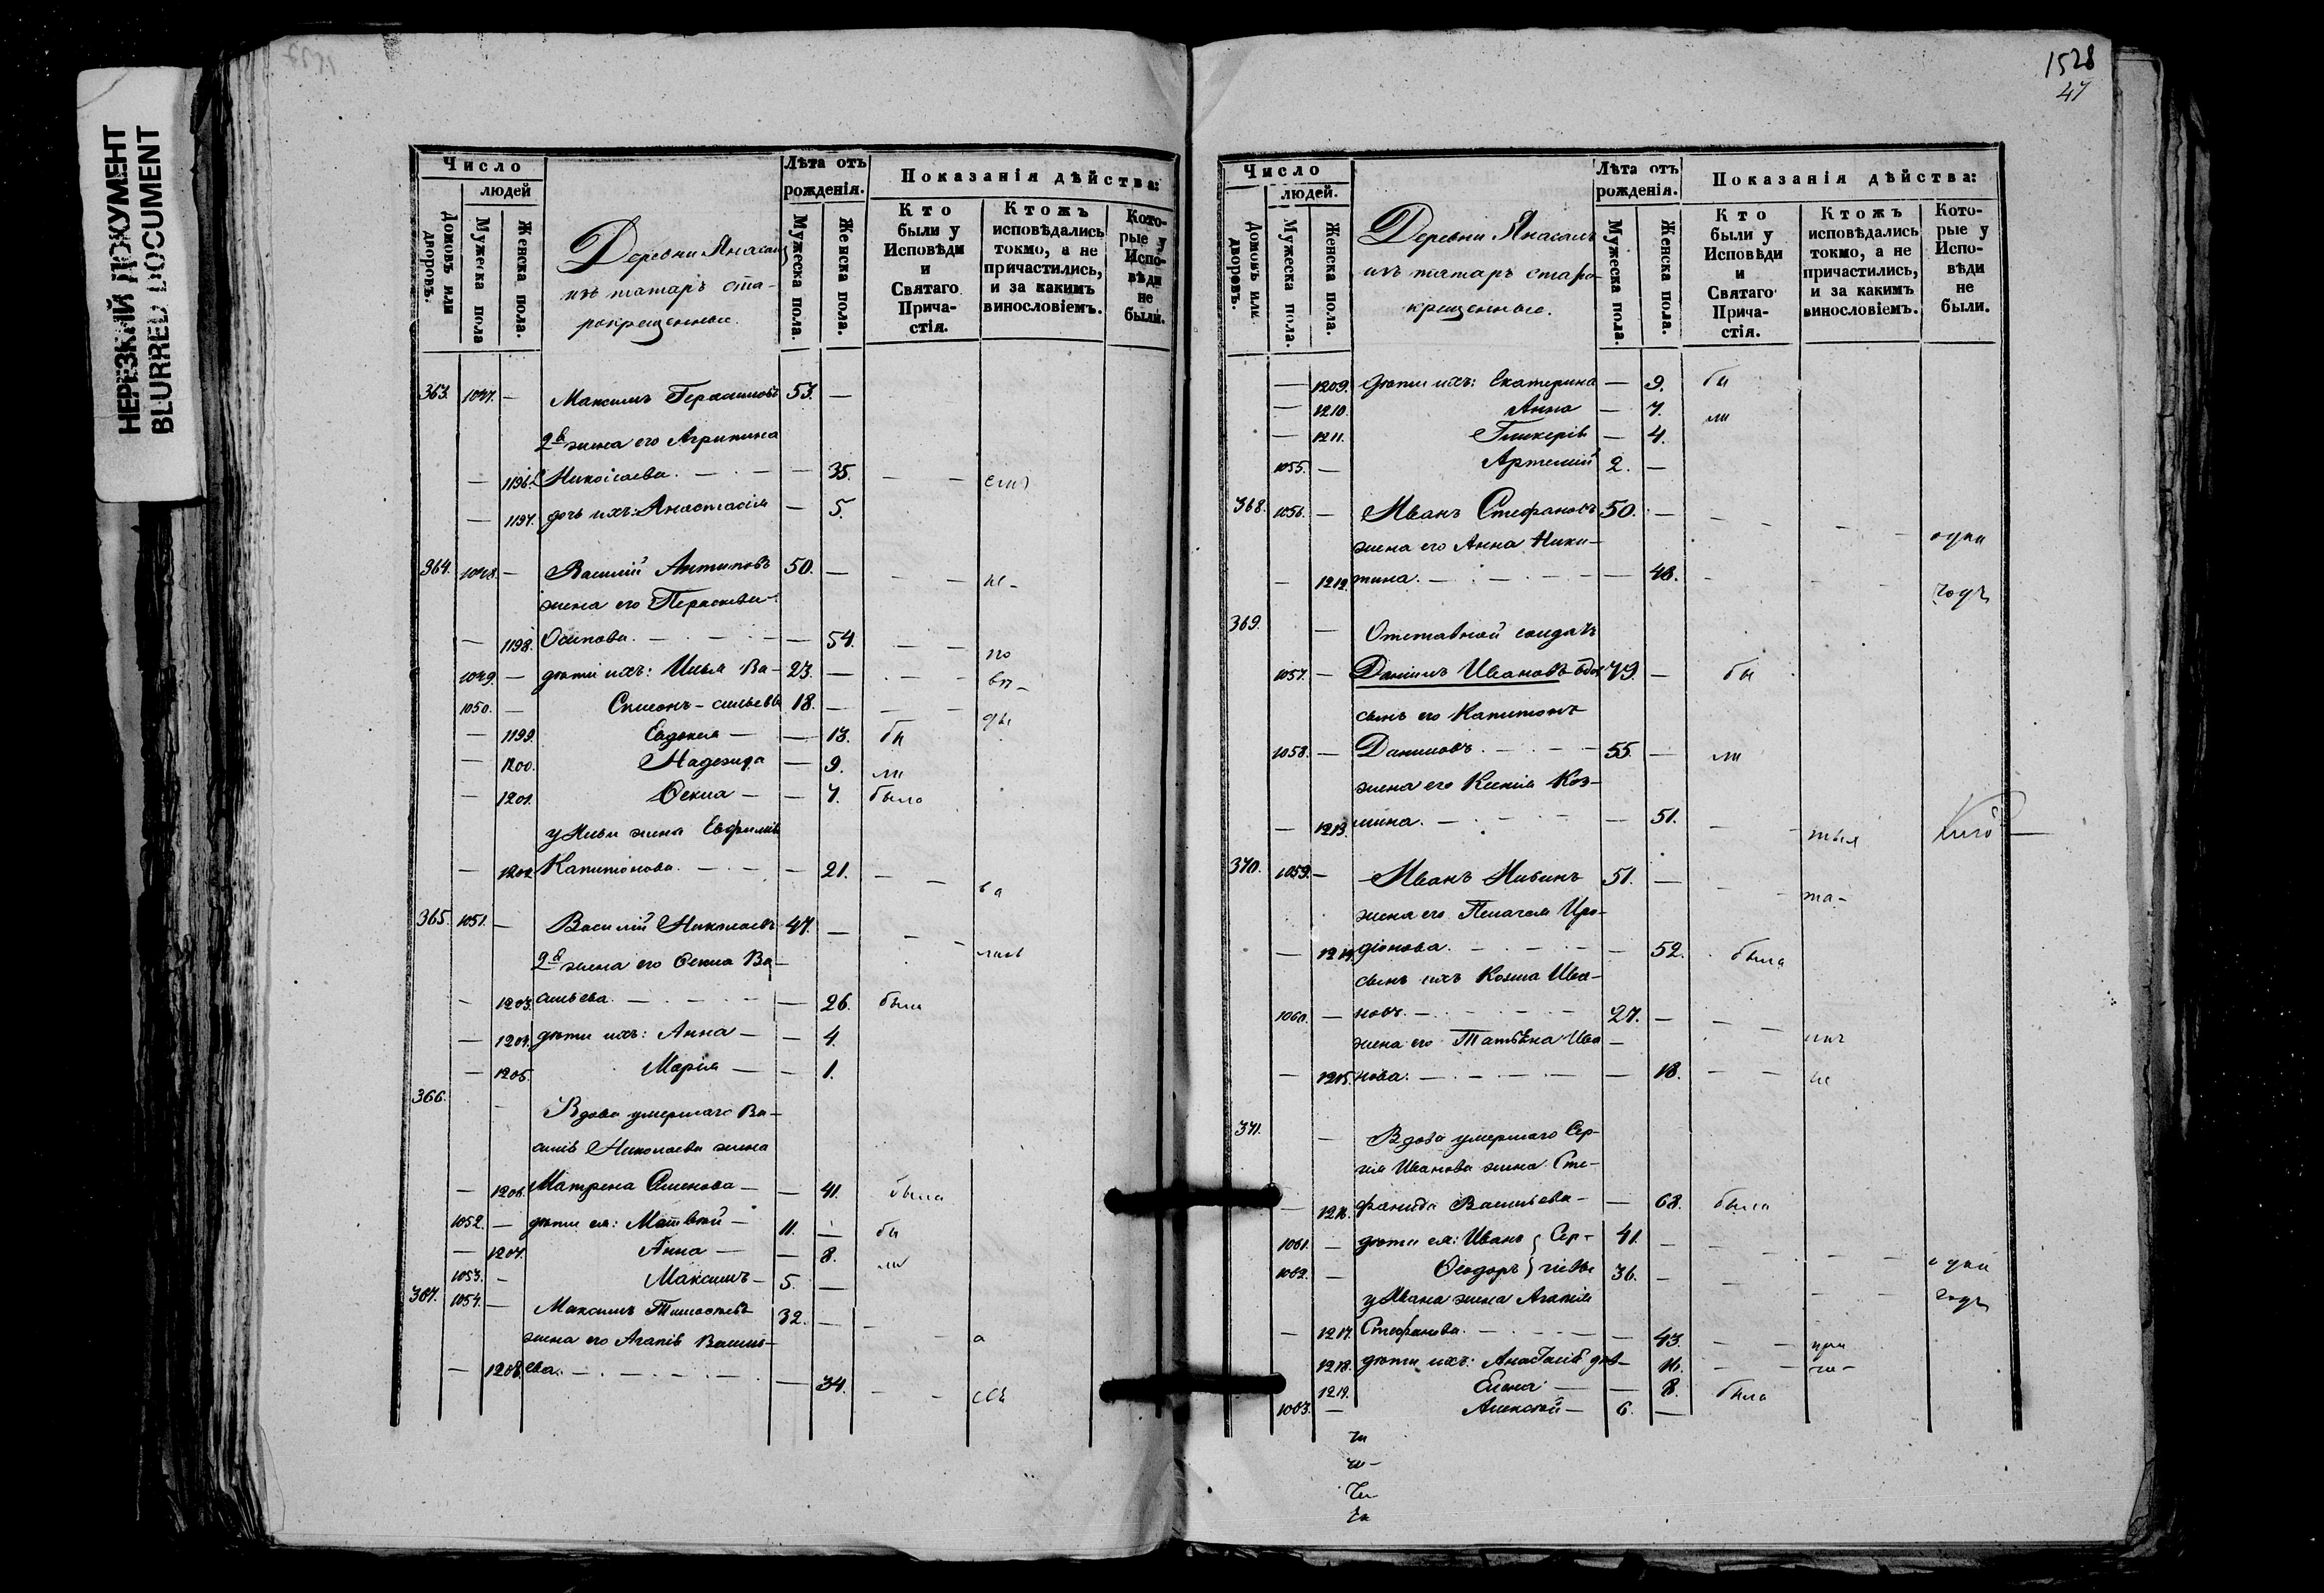 НЕРЕЗКИЙ ДОКУМЕНТ
BLURRED DOCUMENT
Число
людей
Домовъ или дворовъ.
Мужеска пола
Женска пола.
Деревни Янасалъ
изъ татаръ ста-
рокрещенные.
Лѣта отъ рожденія.
Мужеска пола.
Женска пола.
Показанія дѣйства:
Кто были у Исповѣди и Святаго Прича-стія.
Ктожъ исповѣдались токмо, а не причастились, и за какимъ винословіемъ.
Кото-рые у Испо-вѣди не были.
363. 1047. — Максимъ Герасимовъ 53. —
2я жена его Агрипина
— 1196. Николаева. — — 35. — —
— 1197. дочь ихъ: Анастасія — 5.
364. 1048. — Василій Антиповъ 50. — — — не-
жена его Параскева
— 1198. Осипова. — — 54. — — по
1049. — дѣти ихъ: Илья Ва- 23. — — —
1050. — Симеонъ - сильевы 18. — — —
— 1199. Евдокія — — 13. бы
— 1200. Надежда — 9. ли
— 1201. Ѳекла — — 7. была
у Ильи жена Евфимія
— 1202. Капитонова. — — 21. — —
365. 1051. — Василій Николаевъ 47. — — —
2я жена его Ѳекла Ва-
— 1203. сильева. — — 26. была
— 1204. дѣти ихъ: Анна — — 4.
— 1205. Марія — — 1.
366. — Вдова умершаго Ва-
силія Николаева жена
— 1206. Матрена Семенова — — 41. была
1052. — дѣти ея: Матвѣй — 11. — бы
— 1207. Анна — — 8. ли
1053. — Максимъ — 5. —
367. 1054. — Максимъ Тимофеевъ 32. — — — а
жена его Агапія Василь-
— 1208. ева. — — 34. — —
1528
47
Число
людей.
Домовъ или дворовъ.
Мужеска пола.
Женска пола.
Деревни Янасалъ
изъ татаръ старо-
крещенные.
Лѣта отъ рожденія.
Мужеска пола.
Женска пола.
Показанія дѣйства:
Кто были у Исповѣди и Святаго Прича-стія.
Ктожъ исповѣдались токмо, а не причастились, и за какимъ винословіемъ.
Кото-рые у Испо-вѣди не были.
— 1209. дѣти ихъ: Екатерина — 9. бы
— 1210. Анна — 7. ли
— 1211. Гликерія — 4.
1055. — Артемій 2. —
368. 1056. — Иванъ Стефановъ 50. — — — —
жена его Анна Ники-
— 1212. тина. — — 48. — — —
369. — Отставной солдатъ
1057. — Даніилъ Ивановъ вдов 79. — бы
сынъ его Капитонъ
1058. — Даниловъ. — 55. — ли
жена его Ксенія Коз-
— 1213. мина. — — 51. — —
370. 1059. — Иванъ Ильинъ 51. — — —
жена его Пелагея Иро-
— 1214. діонова. — — 52. была
сынъ ихъ Козма Ива-
1060. — новъ. — 27. — — —
жена его Татьяна Ива-
— 1215. нова. — — 18. — —
371. — Вдова умершаго Сер-
гія Иванова жена Сте-
— 1216. фанида Васильева — — 68. была
1061. — дѣти ея: Иванъ } Сер- 41. — — — —
1062. — Ѳеодоръ } гіевы 36. — — — —
у Ивана жена Агапія
— 1217. Стефанова. — — 43. — —
1218. дѣти ихъ: Анастасія дѣв- 16. — —
1219. Елена — — 8. была
1063. — Алексѣй — 6. —